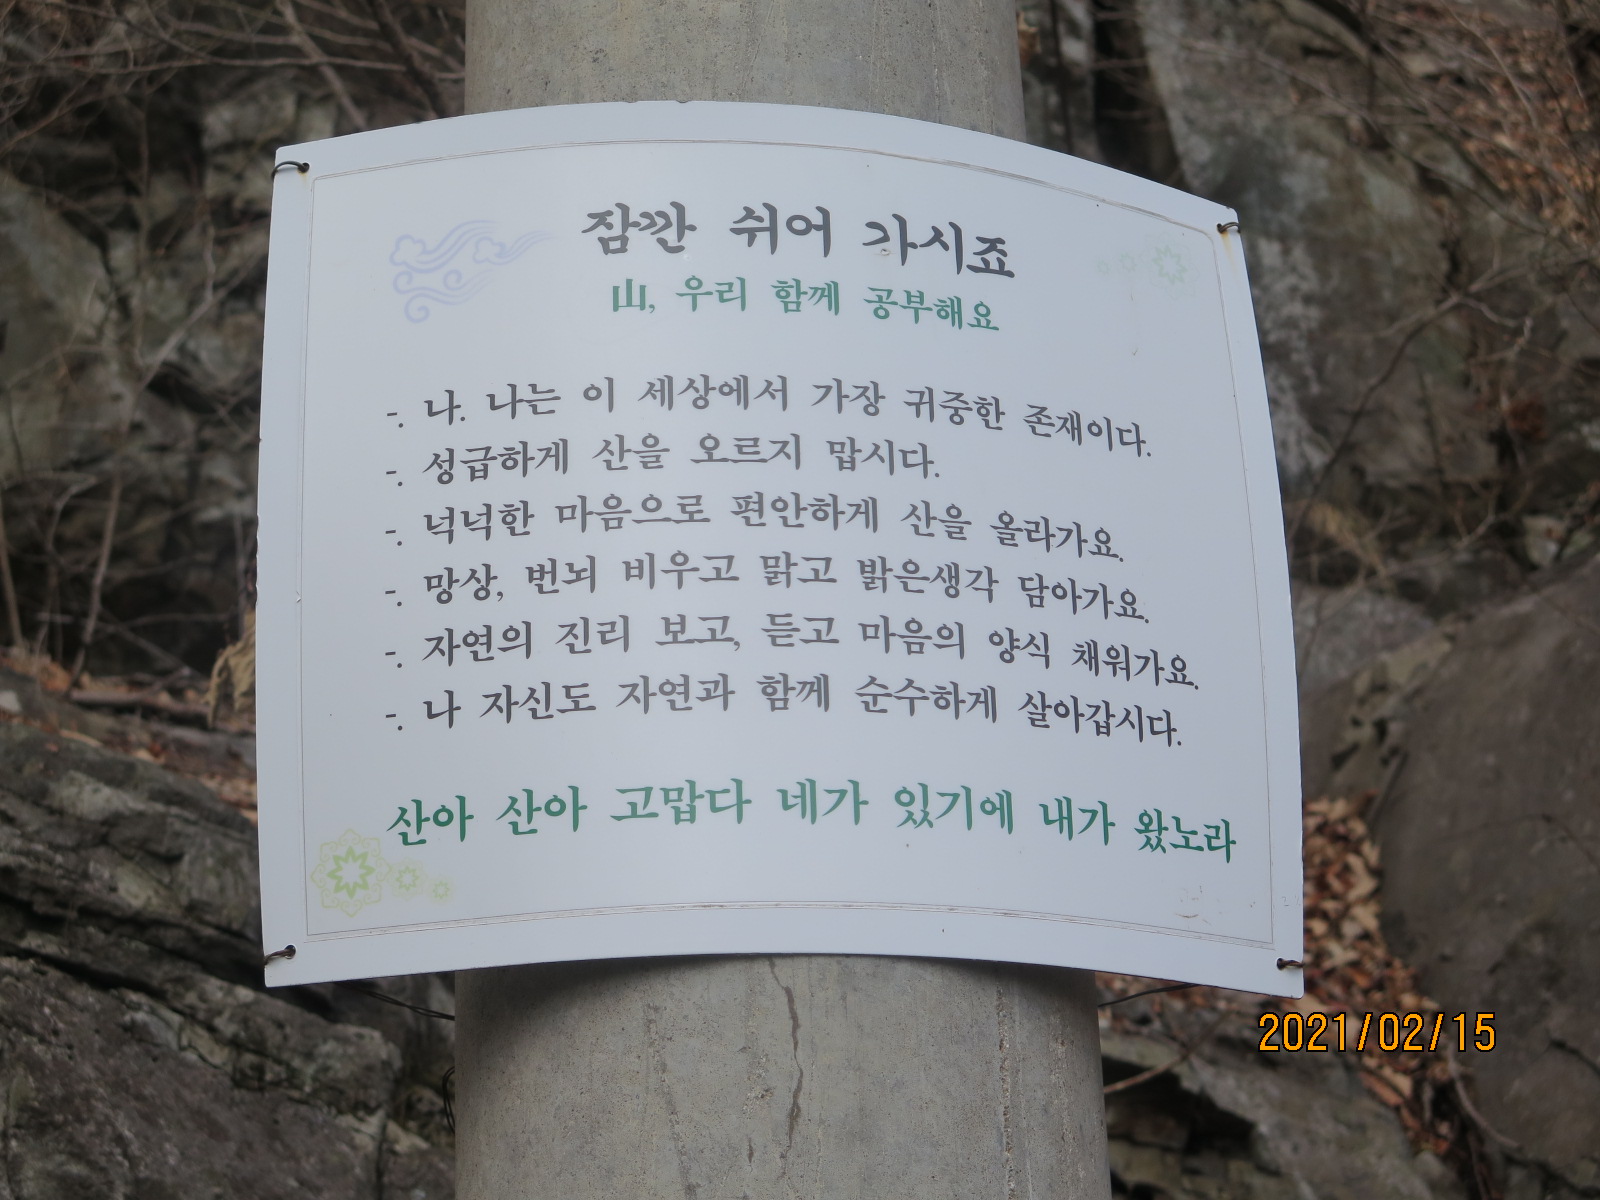 잠깐 쉬어 가시죠
山, 우리 함께 공부해요
-. 나. 나는 이 세상에서 가장 귀중한 존재이다.
-. 성급하게 산을 오르지 맙시다.
-. 넉넉한 마음으로 편안하게 산을 올라가요.
-. 망상, 번뇌 비우고 맑고 밝은생각 담아가요.
-. 자연의 진리 보고, 듣고 마음의 양식 채워가요.
-. 나 자신도 자연과 함께 순수하게 살아갑시다.
산아 산아 고맙다 네가 있기에 내가 왔노라
2021/02/15